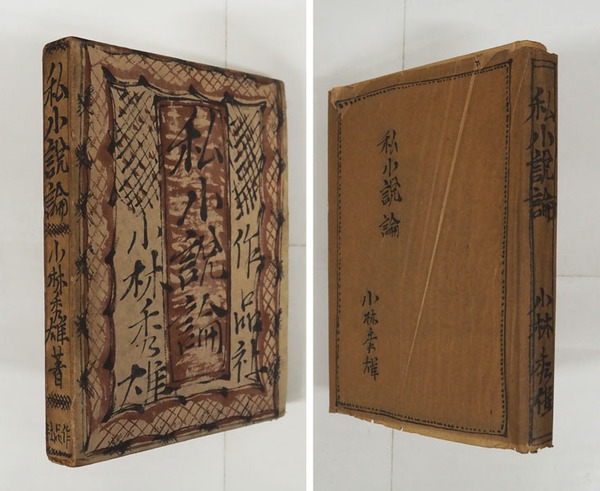 私小說論
小林秀雄著
作品社
作品社
私小說論
小林秀雄
私小說論
小林秀雄
私小說論
小林秀雄